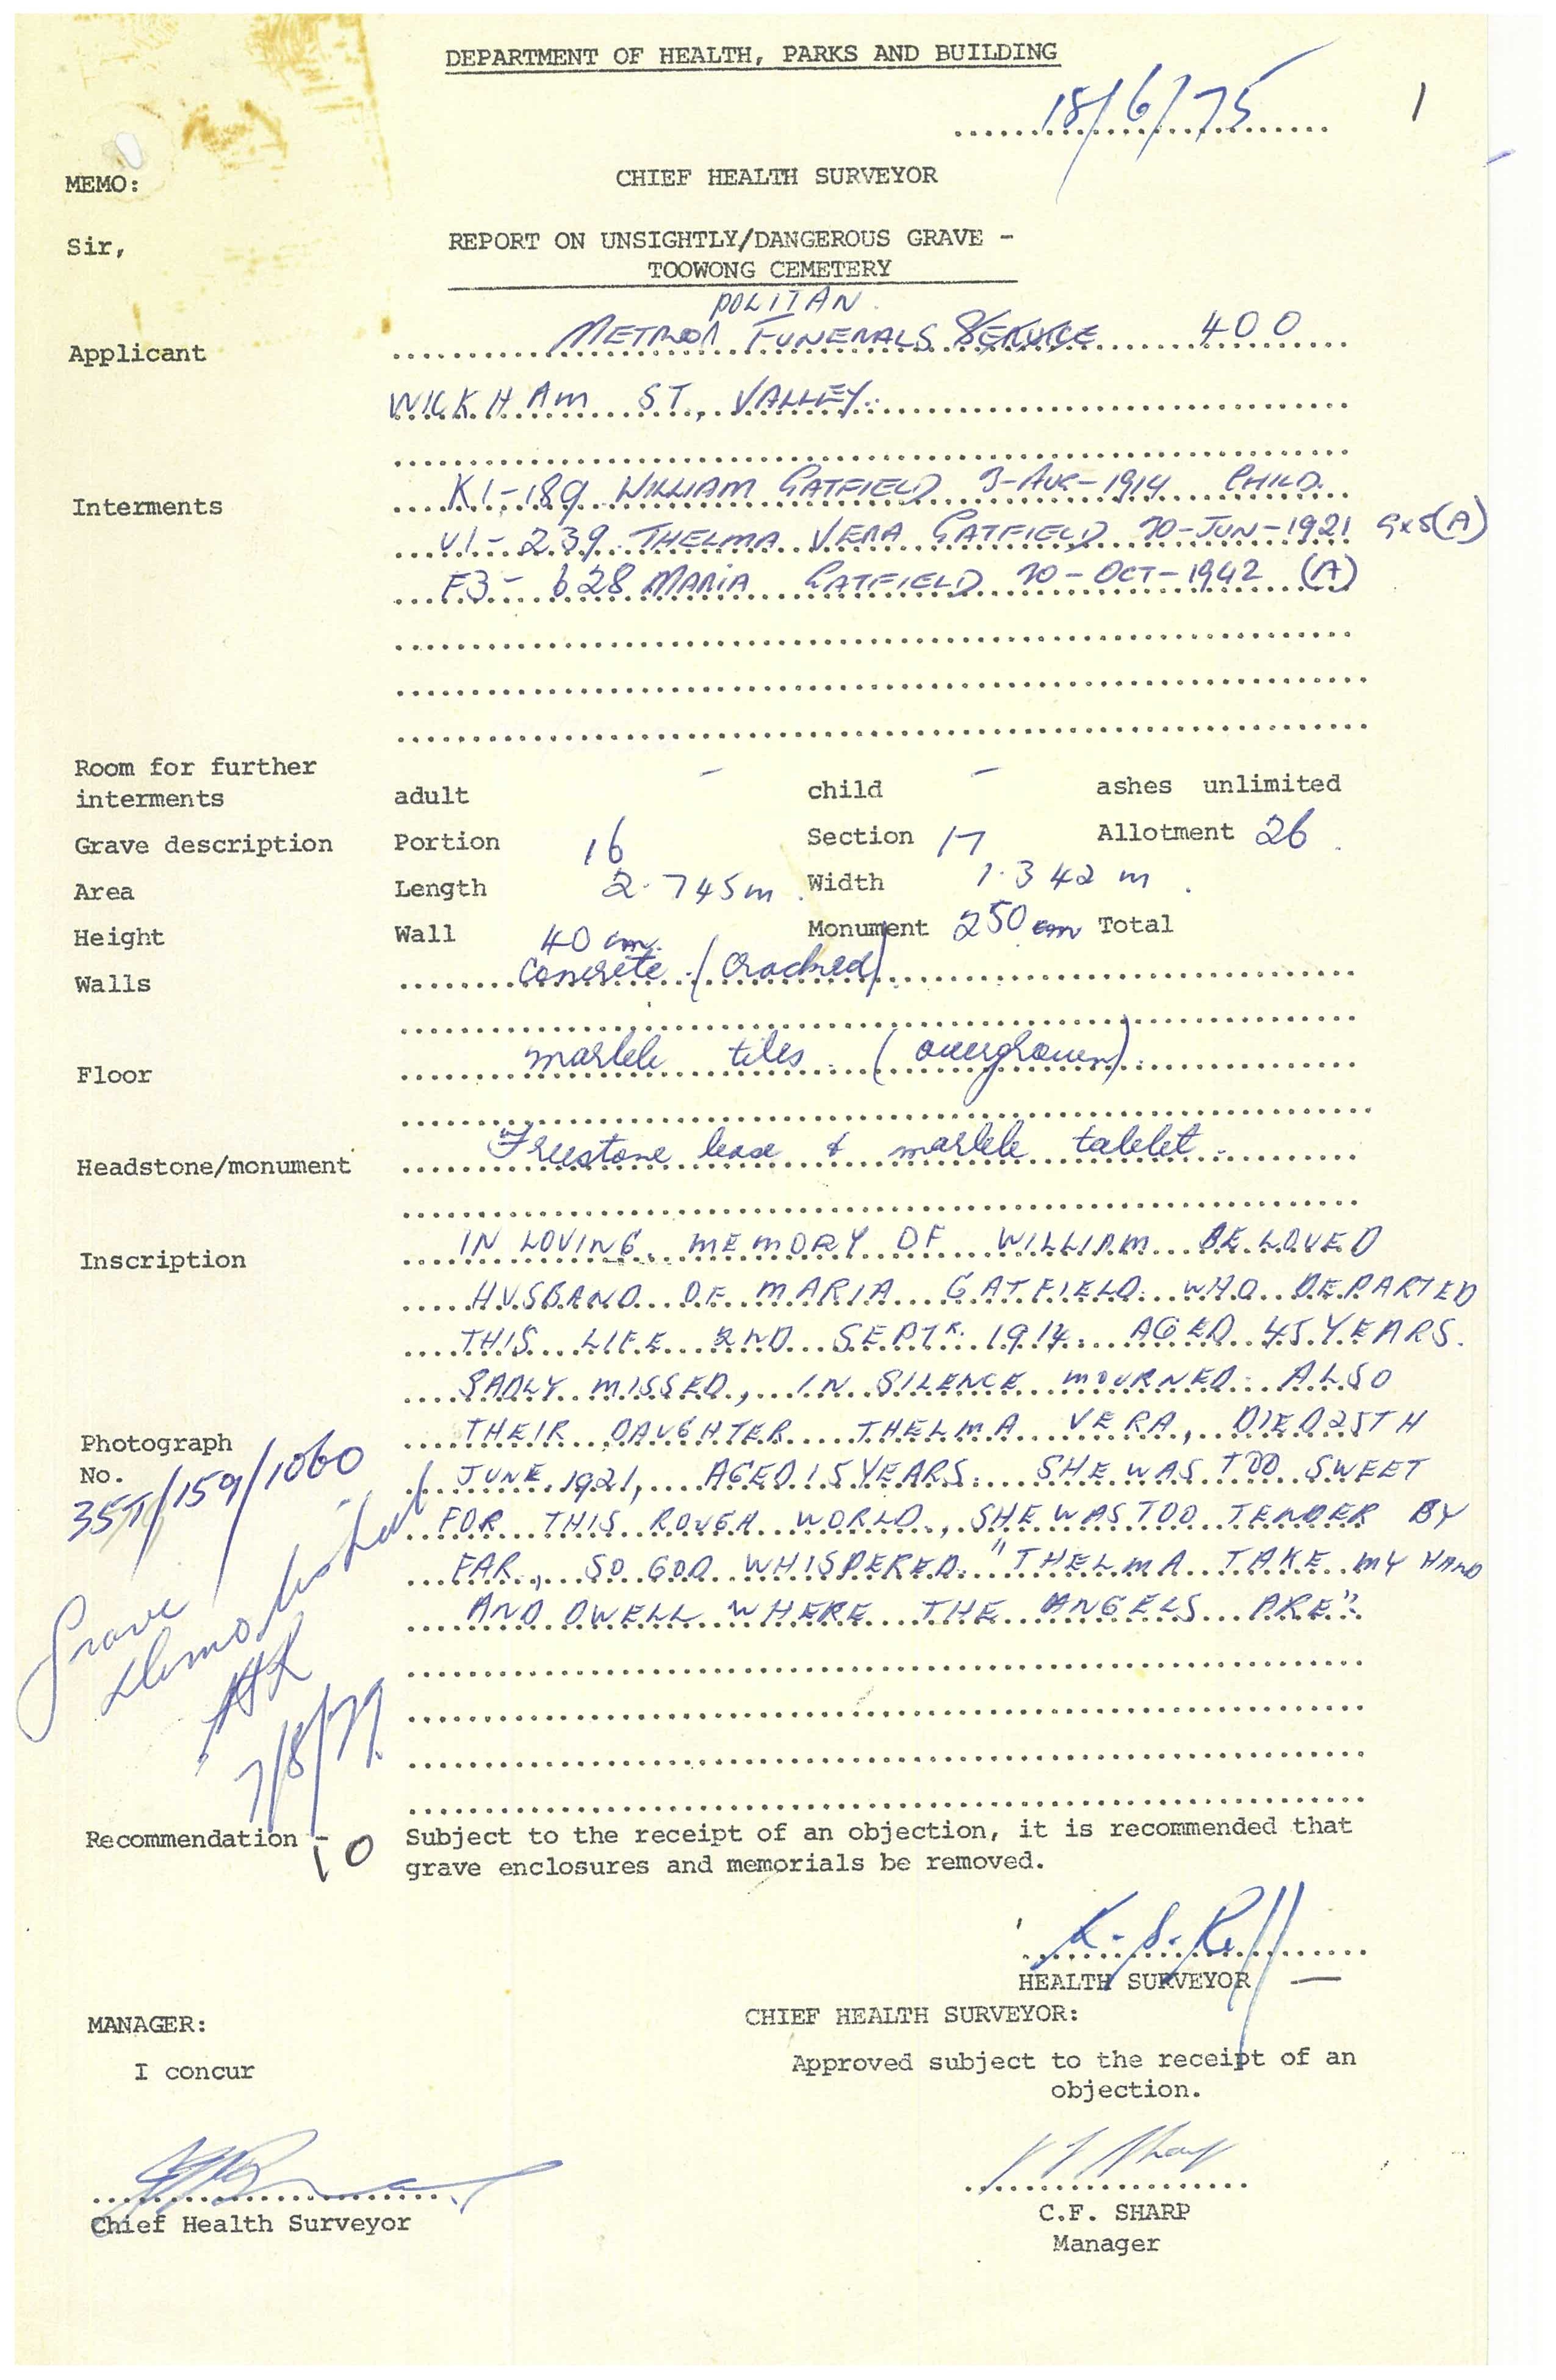 DEPARTMENT OF HEALTH, PARKS AND BUILDING
18/6/75
1
MEMO:
CHIEF HEALTH SURVEYOR
Sir,
REPORT ON UNSIGHTLY/DANGEROUS GRAVE -
TOOWONG CEMETERY
POLITAN
Applicant METRO FUNERALS SERVICE 400
WICKHAM ST, VALLEY.
Interments K1-189 WILLIAM GATFIELD 3-AUG-1914 CHILD.
V1-239 THELMA VERA GATFIELD 10-JUN-1921 9x5(A)
F3-628 MARIA GATFIELD 10-OCT-1942 (A)
Room for further
interments adult - child - ashes unlimited
Grave description Portion 16 Section 17 Allotment 26.
Area Length 2.745m. Width 1.342 m.
Height Wall 40 cm. Monument 250 cm Total
Walls Concrete. (Cracked)
Floor marble tiles. (overgrown).
Headstone/monument Freestone base & marble tablet.
Inscription IN LOVING MEMORY OF WILLIAM BELOVED
HUSBAND OF MARIA GATFIELD WHO DEPARTED
THIS LIFE 2ND SEPTR. 1914. AGED 45 YEARS.
SADLY MISSED, IN SILENCE MOURNED. ALSO
THEIR DAUGHTER THELMA VERA, DIED 25TH
Photograph
No.
357/159/1060
JUNE 1921, AGED 15 YEARS. SHE WAS TOO SWEET
FOR THIS ROUGH WORLD, SHE WAS TOO TENDER BY
FAR, SO GOD WHISPERED "THELMA TAKE MY HAND
AND DWELL WHERE THE ANGELS ARE".
Grave
demolished
7/8/79.
Recommendation - Subject to the receipt of an objection, it is recommended that
10 grave enclosures and memorials be removed.
HEALTH SURVEYOR
MANAGER:
CHIEF HEALTH SURVEYOR:
I concur
Approved subject to the receipt of an
objection.
Chief Health Surveyor
C.F. SHARP
Manager